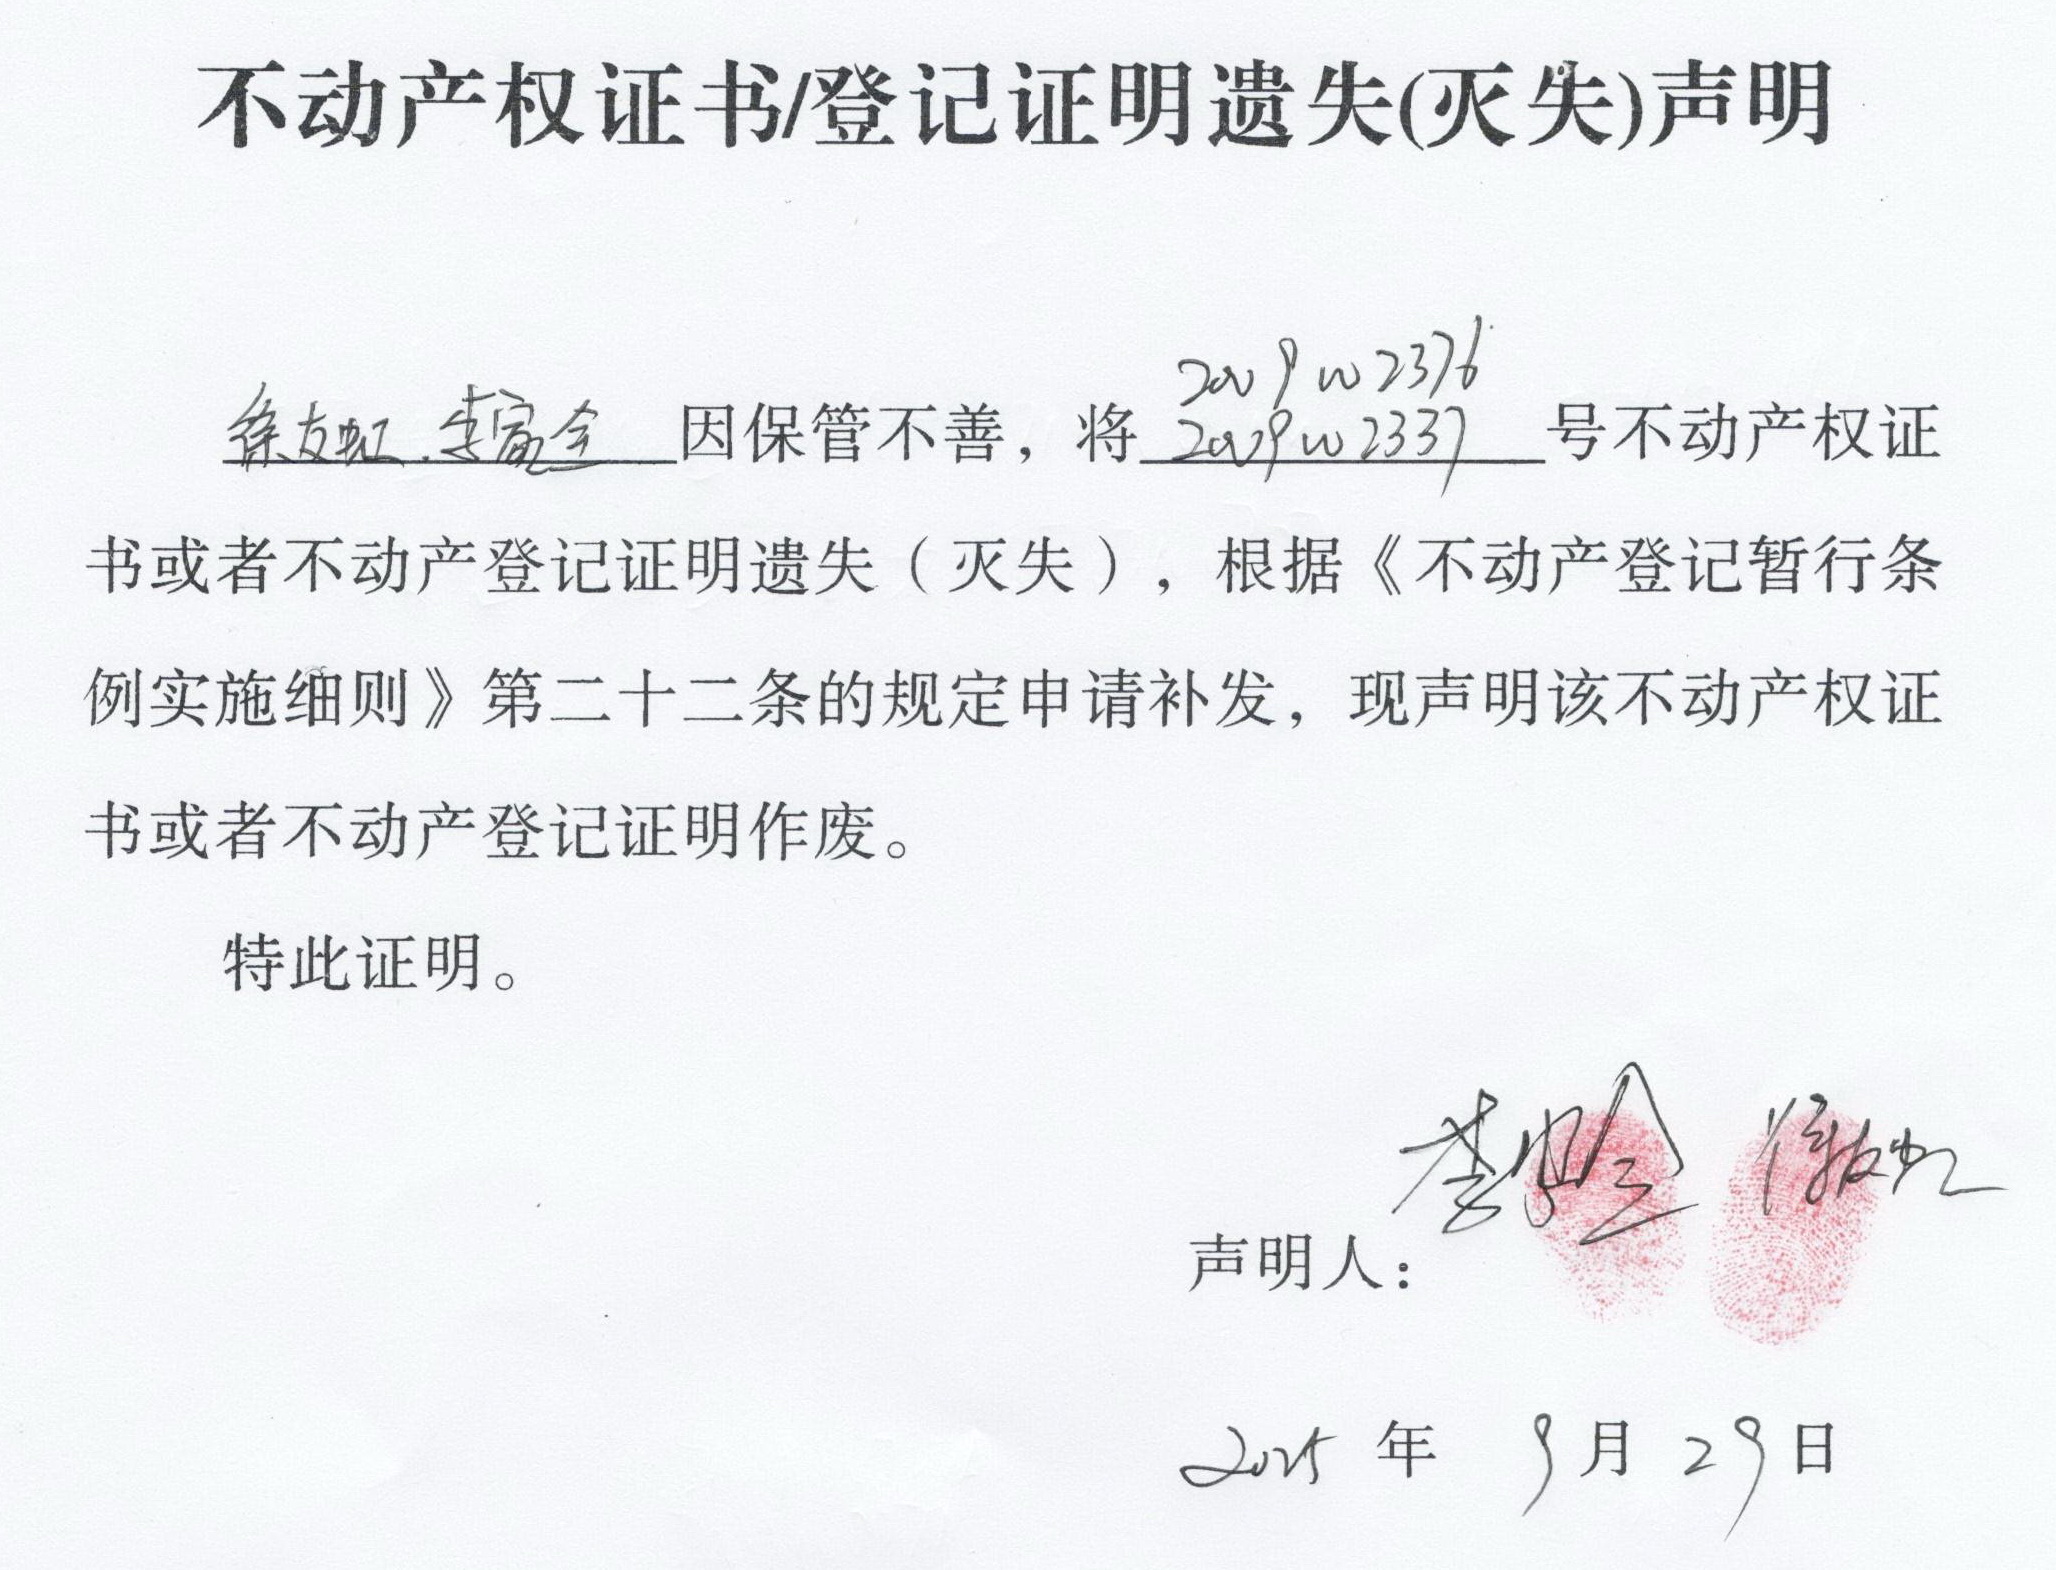 不动产权证书/登记证明遗失(灭失)声明
2009w2376
徐友虹.李家全因保管不善，将2009w2337号不动产权证
书或者不动产登记证明遗失（灭失），根据《不动产登记暂行条
例实施细则》第二十二条的规定申请补发，现声明该不动产权证
书或者不动产登记证明作废。
特此证明。
李家全 徐友虹
声明人：
2025年 9月29日